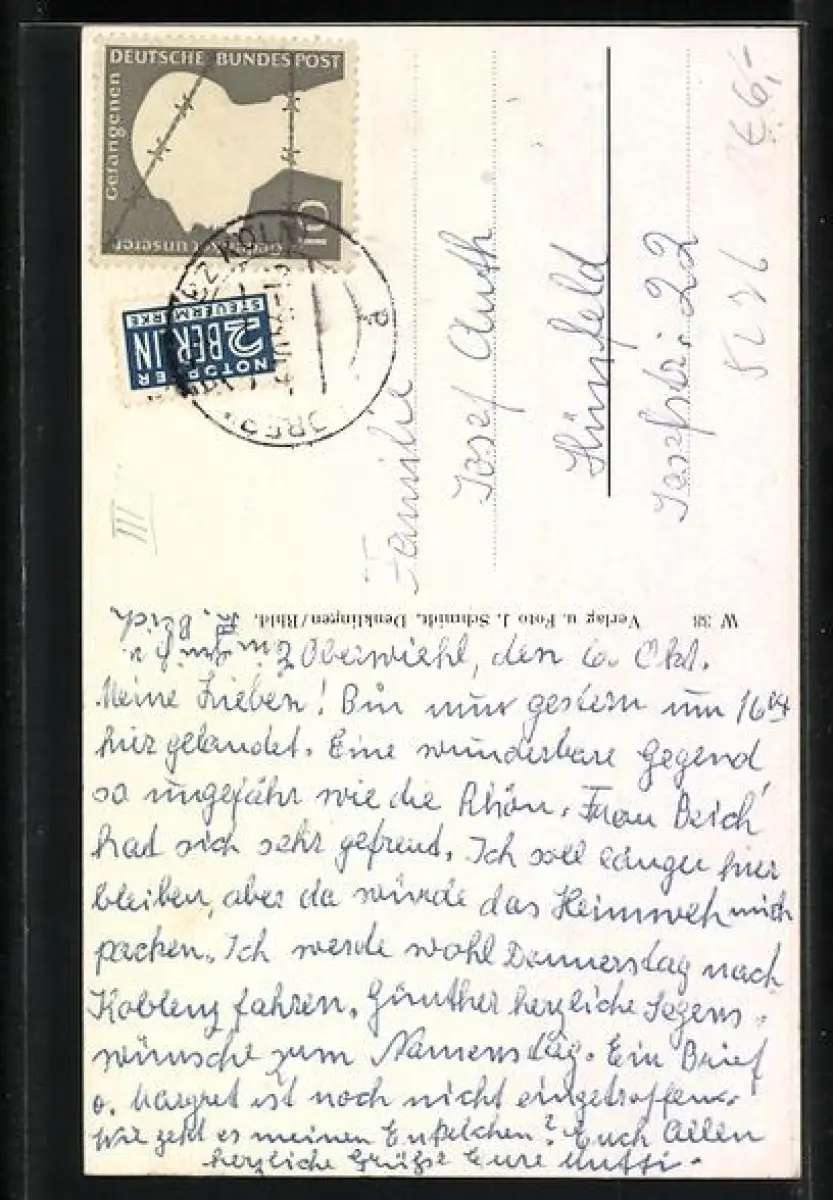 DEUTSCHE BUNDESPOST
Gedenket unserer
Gefangenen
10
NOTOPFER
2 BERLIN
STEUERMARKE
KÖLN
d
III
66,-
Familie
Josef Auth
Hünfeld
Josefstr. 22
5276
W 38 Verlag u. Foto J. Schmidt, Denklingen/Rhld.
Beich
Oberwiehl, den 6. Okt.
Meine Lieben! Bin nur gestern um 16 04
hier gelandet. Eine wunderbare Gegend,
so ungefähr wie die Rhön. Frau Beich
hat sich sehr gefreut. Ich soll länger hier
bleiben, aber da würde das Heimweh mich
packen. Ich werde wohl Donnerstag nach
Koblenz fahren. Günther herzliche Segens-
wünsche zum Namenstag. Ein Brief
v. Margret ist noch nicht eingetroffen.
Wie geht es meinen Enkelchen? Euch Allen
herzliche Grüße Eure Mutti.